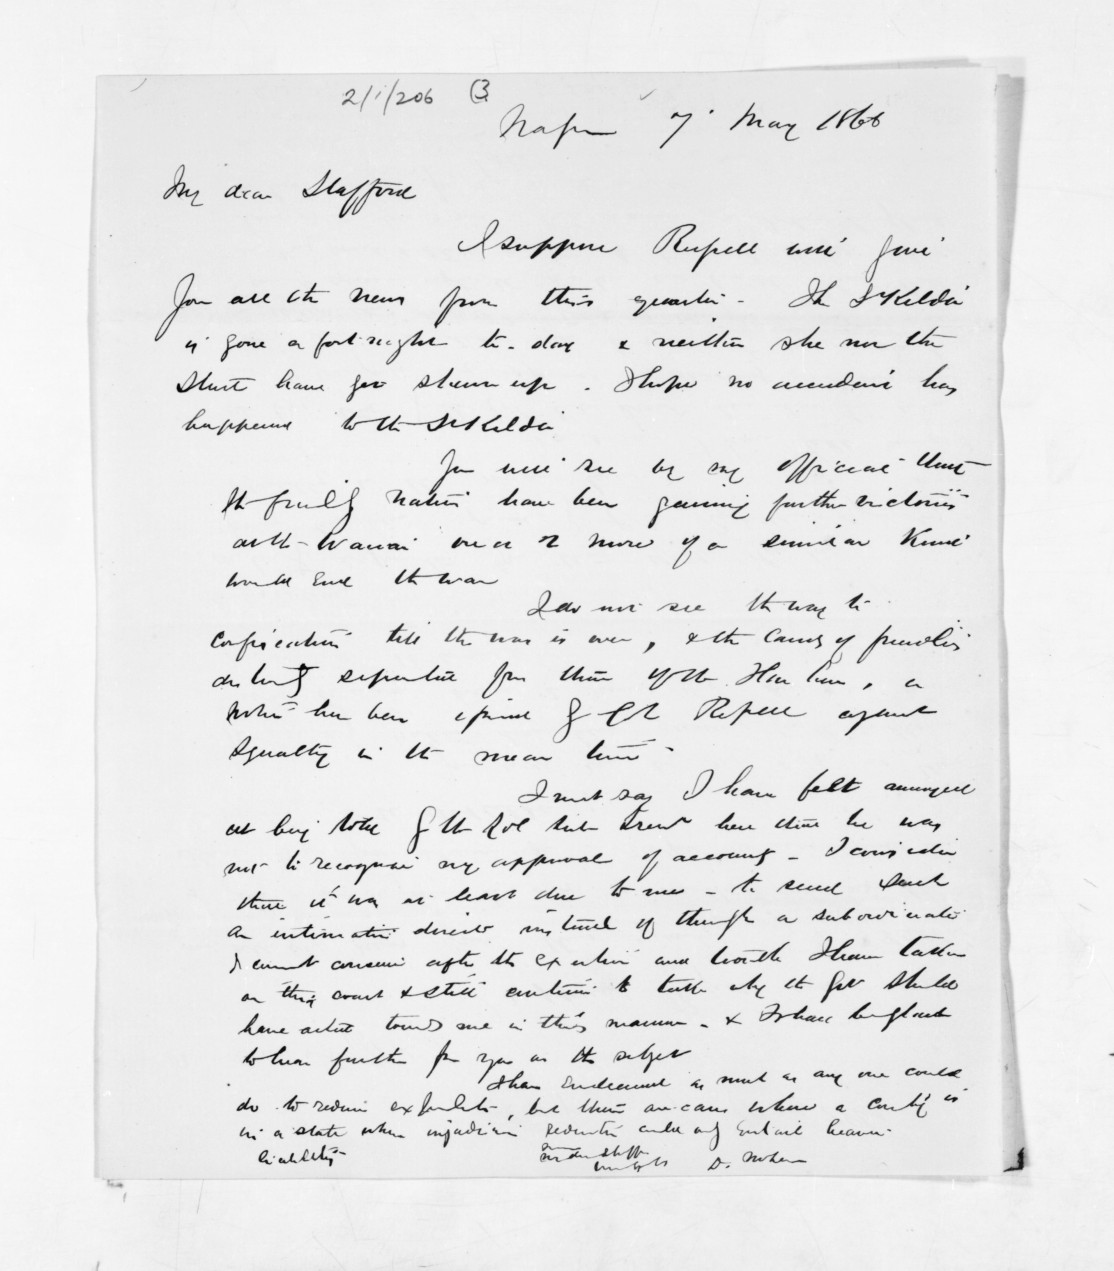 2/1/206 (3
Napier 7 May 1866
My dear Stafford
I suppose Russell will give
you all the news from this quarter - The St Kilda
is gone a fortnight to-day & neither she nor the
Sturt have yet shewn up. I hope no accident has
happened to the St Kilda
You will see by my official that
the friendly natives have been gaining further victories
at the Wairoa one or 2 more of a similar kind
would end the war
I do not see the way to
confiscation till the war is over, & the lands of friendlies
separate from those of the Hau haus, a
notice has been by Col Russell against
in the mean time -
I must say I have felt annoyed
at being told by the Sub here that he was
not to recognise my approval of accounts - I consider
that it was at least due to me - to send such
an intimation direct instead of through a subordinate
I cannot conceive after the exertion and trouble I have taken
on this coast & still continue to take why the Govt should
have acted towards me in this manner - & I shall be glad
to hear further from you on the subject
I have endeavoured as much as any one could
do to reduce expenditure, but there are cases where a country is
in a state when injudicious reduction could only entail heavier
liability
D. McLean